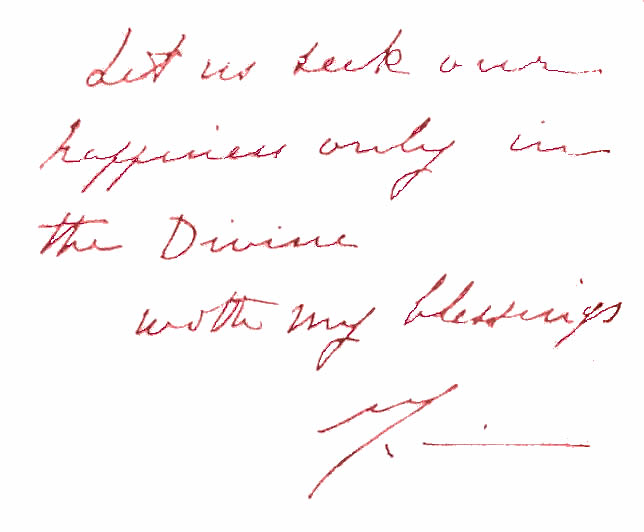 Let us seek our
happiness only in
the Divine
with my blessings